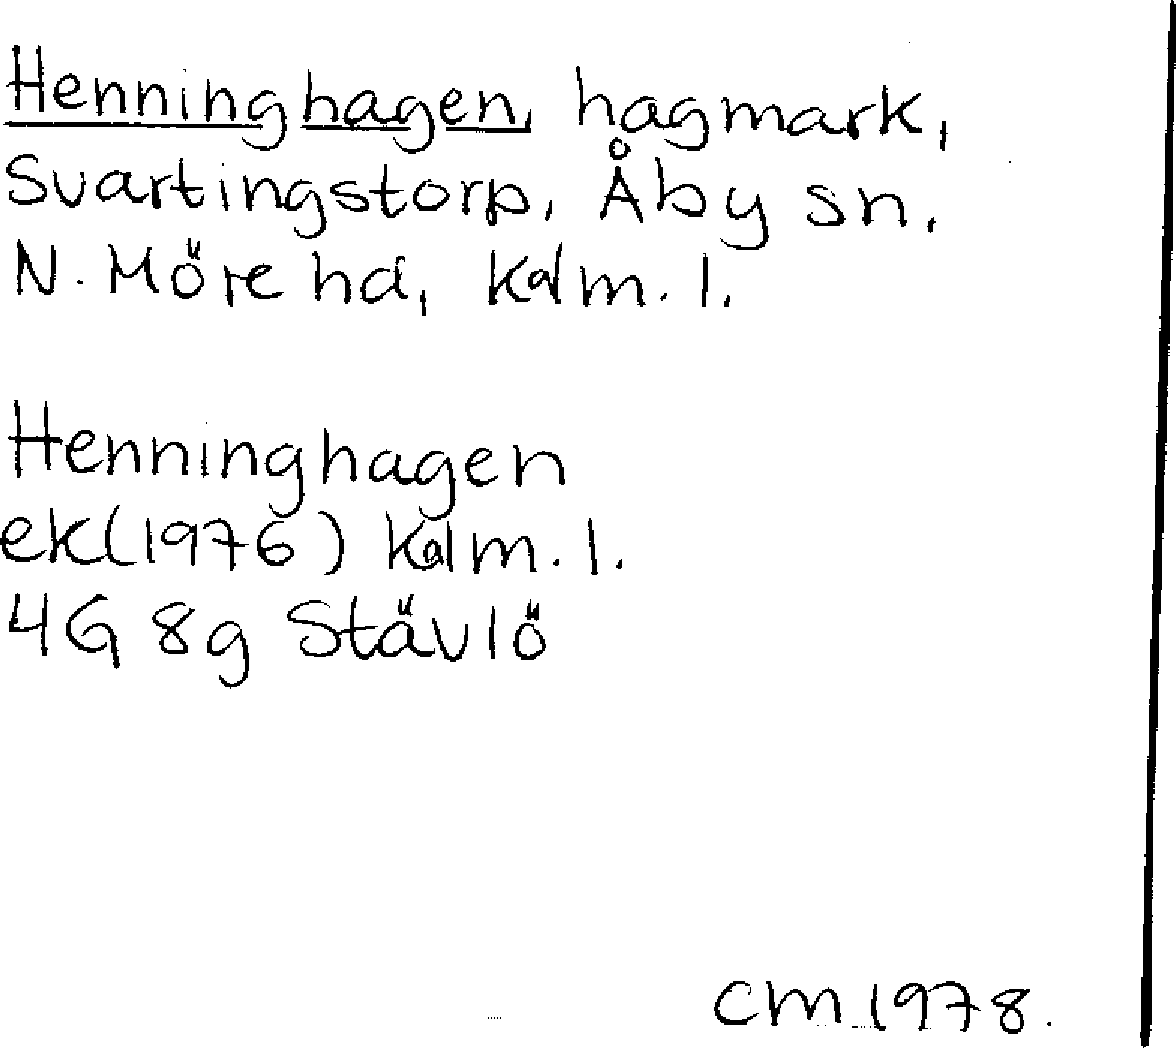 Henninghagen, hagmark,
Svartingstorp, Åby sn.
N. Möre hd, Kalm. l.
Henninghagen
ek(1976) Kalm. l.
4G 8g Stävlö
CM 1978.